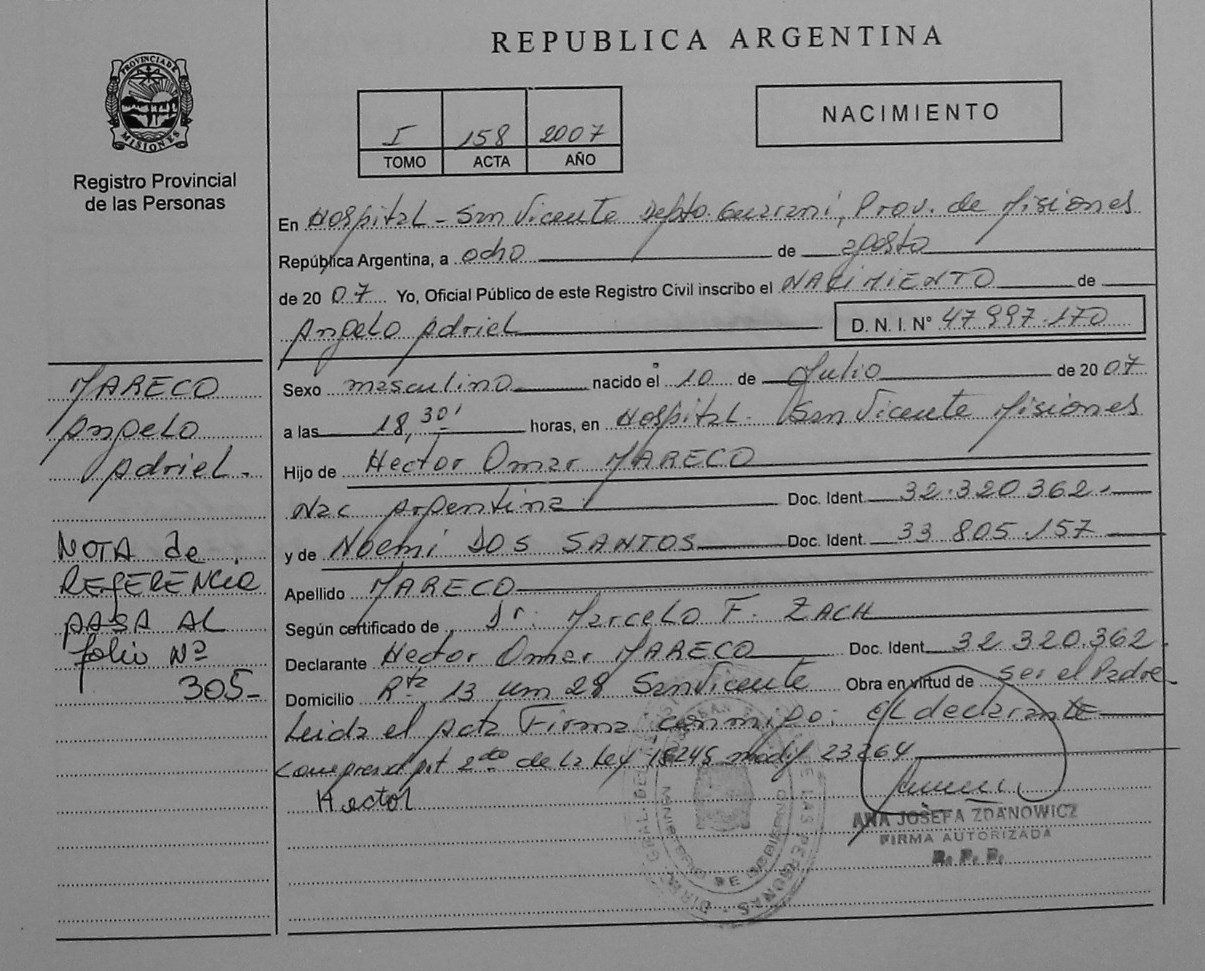 REPUBLICA ARGENTINA
PROVINCIA DE MISIONES
Registro Provincial
de las Personas
I 158 2007
TOMO ACTA AÑO
NACIMIENTO
En Hospital - San Vicente Depto. Guaraní, Prov. de Misiones
República Argentina, a ocho de agosto
de 2007 Yo, Oficial Público de este Registro Civil inscribo el NACIMIENTO de
Angelo Adriel D. N. I. Nº 47 997.170
Sexo masculino nacido el 10 de Julio de 2007
a las 18,30' horas, en Hospital. San Vicente Misiones
Hijo de Hector Omar MARECO
Nac Argentina Doc. Ident. 32.320.362.
y de Noemi DOS SANTOS Doc. Ident. 33 805.157
Apellido MARECO
Según certificado de Dr. Marcelo F. ZACH
Declarante Hector Omar MARECO Doc. Ident. 32 320.362
Domicilio Rta 13 km 28 San Vicente Obra en virtud de ser el Padre
Leida el Acta Firma conmigo: el declarante
2do de la Ley 18248 modif 23264
Hector
ANA JOSEFA ZDANOWICZ
FIRMA AUTORIZADA
R. P. P.
MARECO
Angelo
Adriel.
NOTA de
REFERENCIA
PASA AL
folio Nº
305-